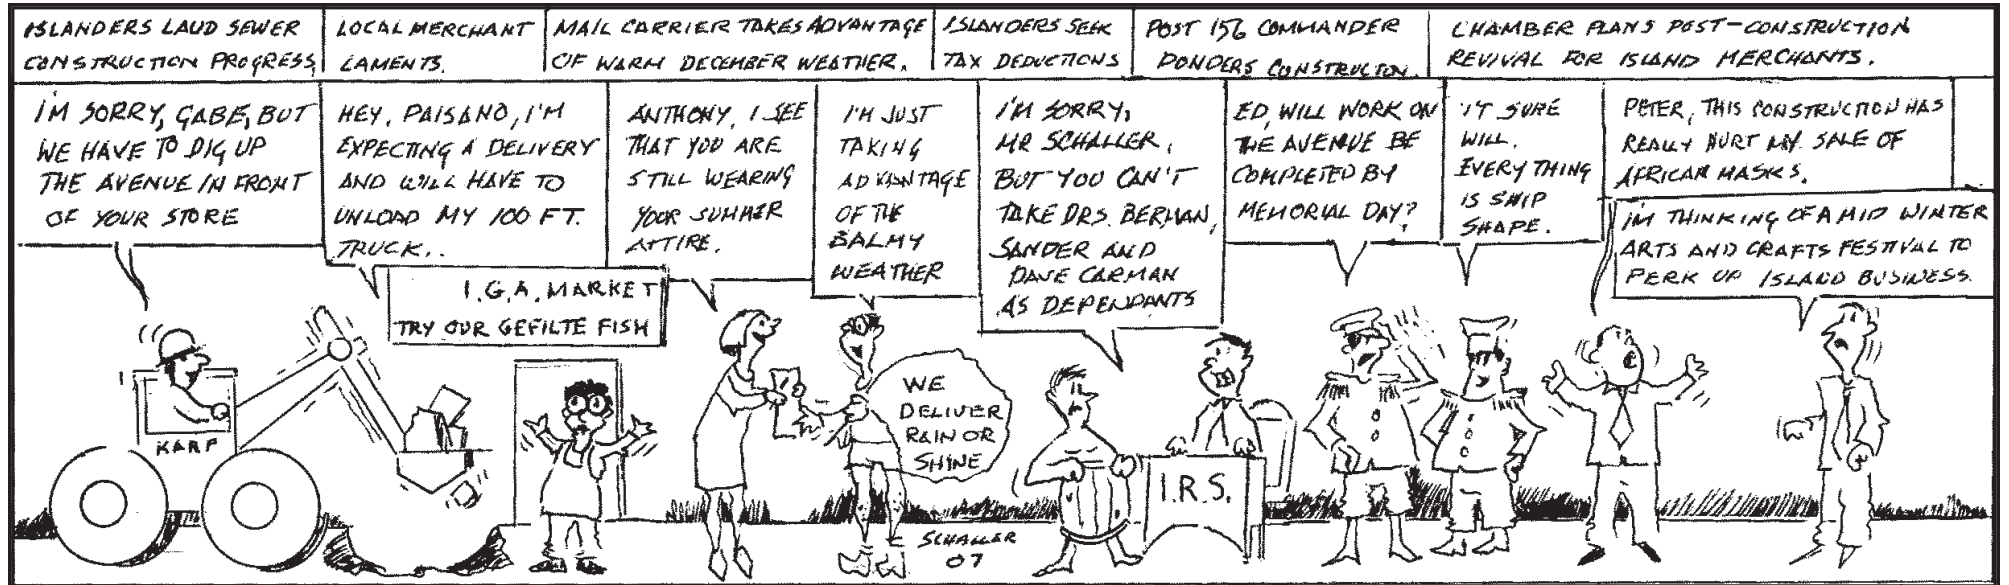 ISLANDERS LAUD SEWER
CONSTRUCTION PROGRESS.
LOCAL MERCHANT
LAMENTS.
MAIL CARRIER TAKES ADVANTAGE
OF WARM DECEMBER WEATHER.
ISLANDERS SEEK
TAX DEDUCTIONS
POST 156 COMMANDER
PONDERS CONSTRUCTON.
CHAMBER PLANS POST-CONSTRUCTION
REVIVAL FOR ISLAND MERCHANTS.
I'M SORRY, GABE, BUT
WE HAVE TO DIG UP
THE AVENUE IN FRONT
OF YOUR STORE
HEY, PAISANO, I'M
EXPECTING A DELIVERY
AND WILL HAVE TO
UNLOAD MY 100 FT.
TRUCK..
ANTHONY, I SEE
THAT YOU ARE
STILL WEARING
YOUR SUMMER
ATTIRE.
I'M JUST
TAKING
ADVANTAGE
OF THE
BALMY
WEATHER
I'M SORRY,
MR SCHALLER,
BUT YOU CAN'T
TAKE DRS. BERMAN,
SANDER AND
DAVE CARMAN
AS DEPENDANTS
ED, WILL WORK ON
THE AVENUE BE
COMPLETED BY
MEMORIAL DAY?
IT SURE
WILL.
EVERY THING
IS SHIP
SHAPE.
PETER, THIS CONSTRUCTION HAS
REALLY HURT MY SALE OF
AFRICAN MASKS.
I'M THINKING OF A MID WINTER
ARTS AND CRAFTS FESTIVAL TO
PERK UP ISLAND BUSINESS.
I.G.A. MARKET
TRY OUR GEFILTE FISH
KARP
WE
DELIVER
RAIN OR
SHINE
I.R.S.
SCHALLER
07